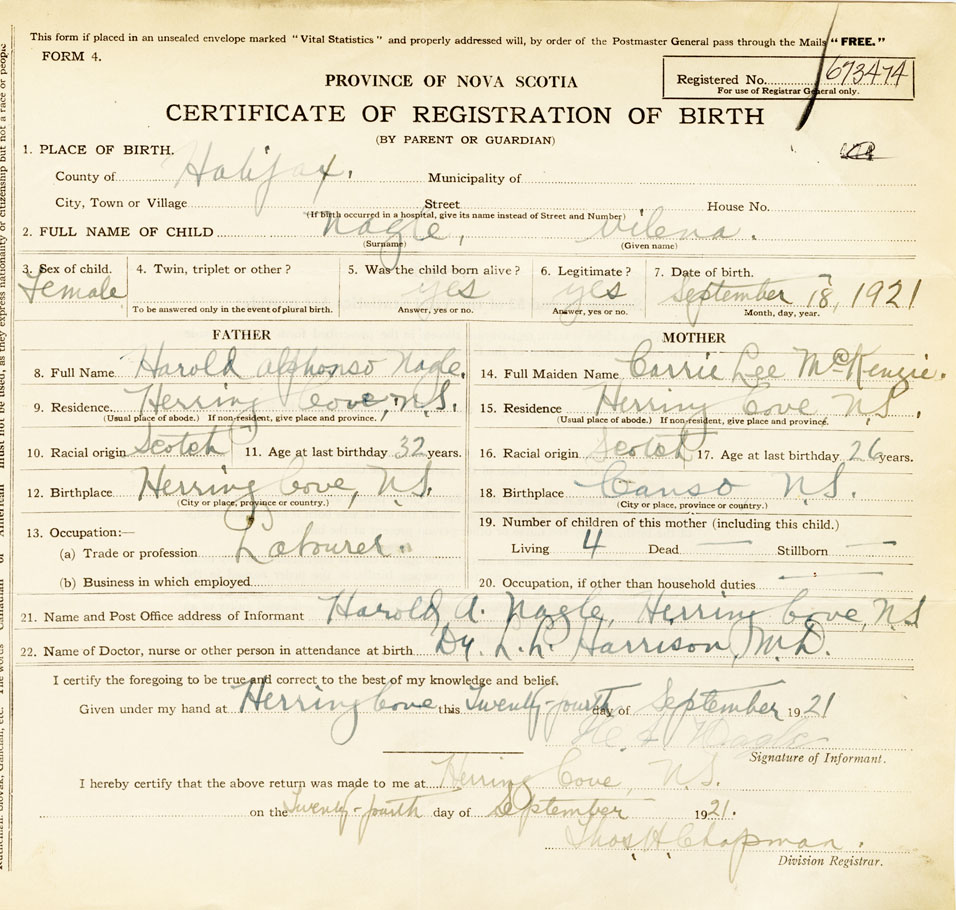 This form if placed in an unsealed envelope marked "Vital Statistics" and properly addressed will, by order of the Postmaster General pass through the Mails "FREE."
FORM 4.
Registered No. 673474
For use of Registrar General only.
PROVINCE OF NOVA SCOTIA
CERTIFICATE OF REGISTRATION OF BIRTH
(BY PARENT OR GUARDIAN)
1. PLACE OF BIRTH.
County of Halifax. Municipality of
City, Town or Village Street House No.
(If birth occurred in a hospital, give its name instead of Street and Number)
2. FULL NAME OF CHILD Nagle, Vilena.
(Surname) (Given name)
3. Sex of child. 4. Twin, triplet or other? 5. Was the child born alive? 6. Legitimate? 7. Date of birth.
Female yes yes September 18, 1921
To be answered only in the event of plural birth. Answer, yes or no. Answer, yes or no. Month, day, year.
FATHER
8. Full Name Harold Alphonso Nagle.
9. Residence Herring Cove, N.S.
(Usual place of abode.) If non-resident, give place and province.
10. Racial origin Scotch 11. Age at last birthday 32 years.
12. Birthplace Herring Cove, N.S.
(City or place, province or country.)
13. Occupation:—
(a) Trade or profession Labourer.
(b) Business in which employed
MOTHER
14. Full Maiden Name Carrie Lee McKenzie.
15. Residence Herring Cove N.S.
(Usual place of abode.) If non-resident, give place and province.
16. Racial origin Scotch 17. Age at last birthday 26 years.
18. Birthplace Canso N.S.
(City or place, province or country.)
19. Number of children of this mother (including this child.)
Living 4 Dead — Stillborn —
20. Occupation, if other than household duties —
21. Name and Post Office address of Informant Harold A. Nagle, Herring Cove, N.S
22. Name of Doctor, nurse or other person in attendance at birth Dr. L. L. Harrison, M.D.
I certify the foregoing to be true and correct to the best of my knowledge and belief.
Given under my hand at Herring Cove this Twenty-fourth day of September 1921
H. A. Nagle
Signature of Informant.
I hereby certify that the above return was made to me at Herring Cove, N.S.
on the Twenty-fourth day of September 1921.
Thos. H. Chapman.
Division Registrar.